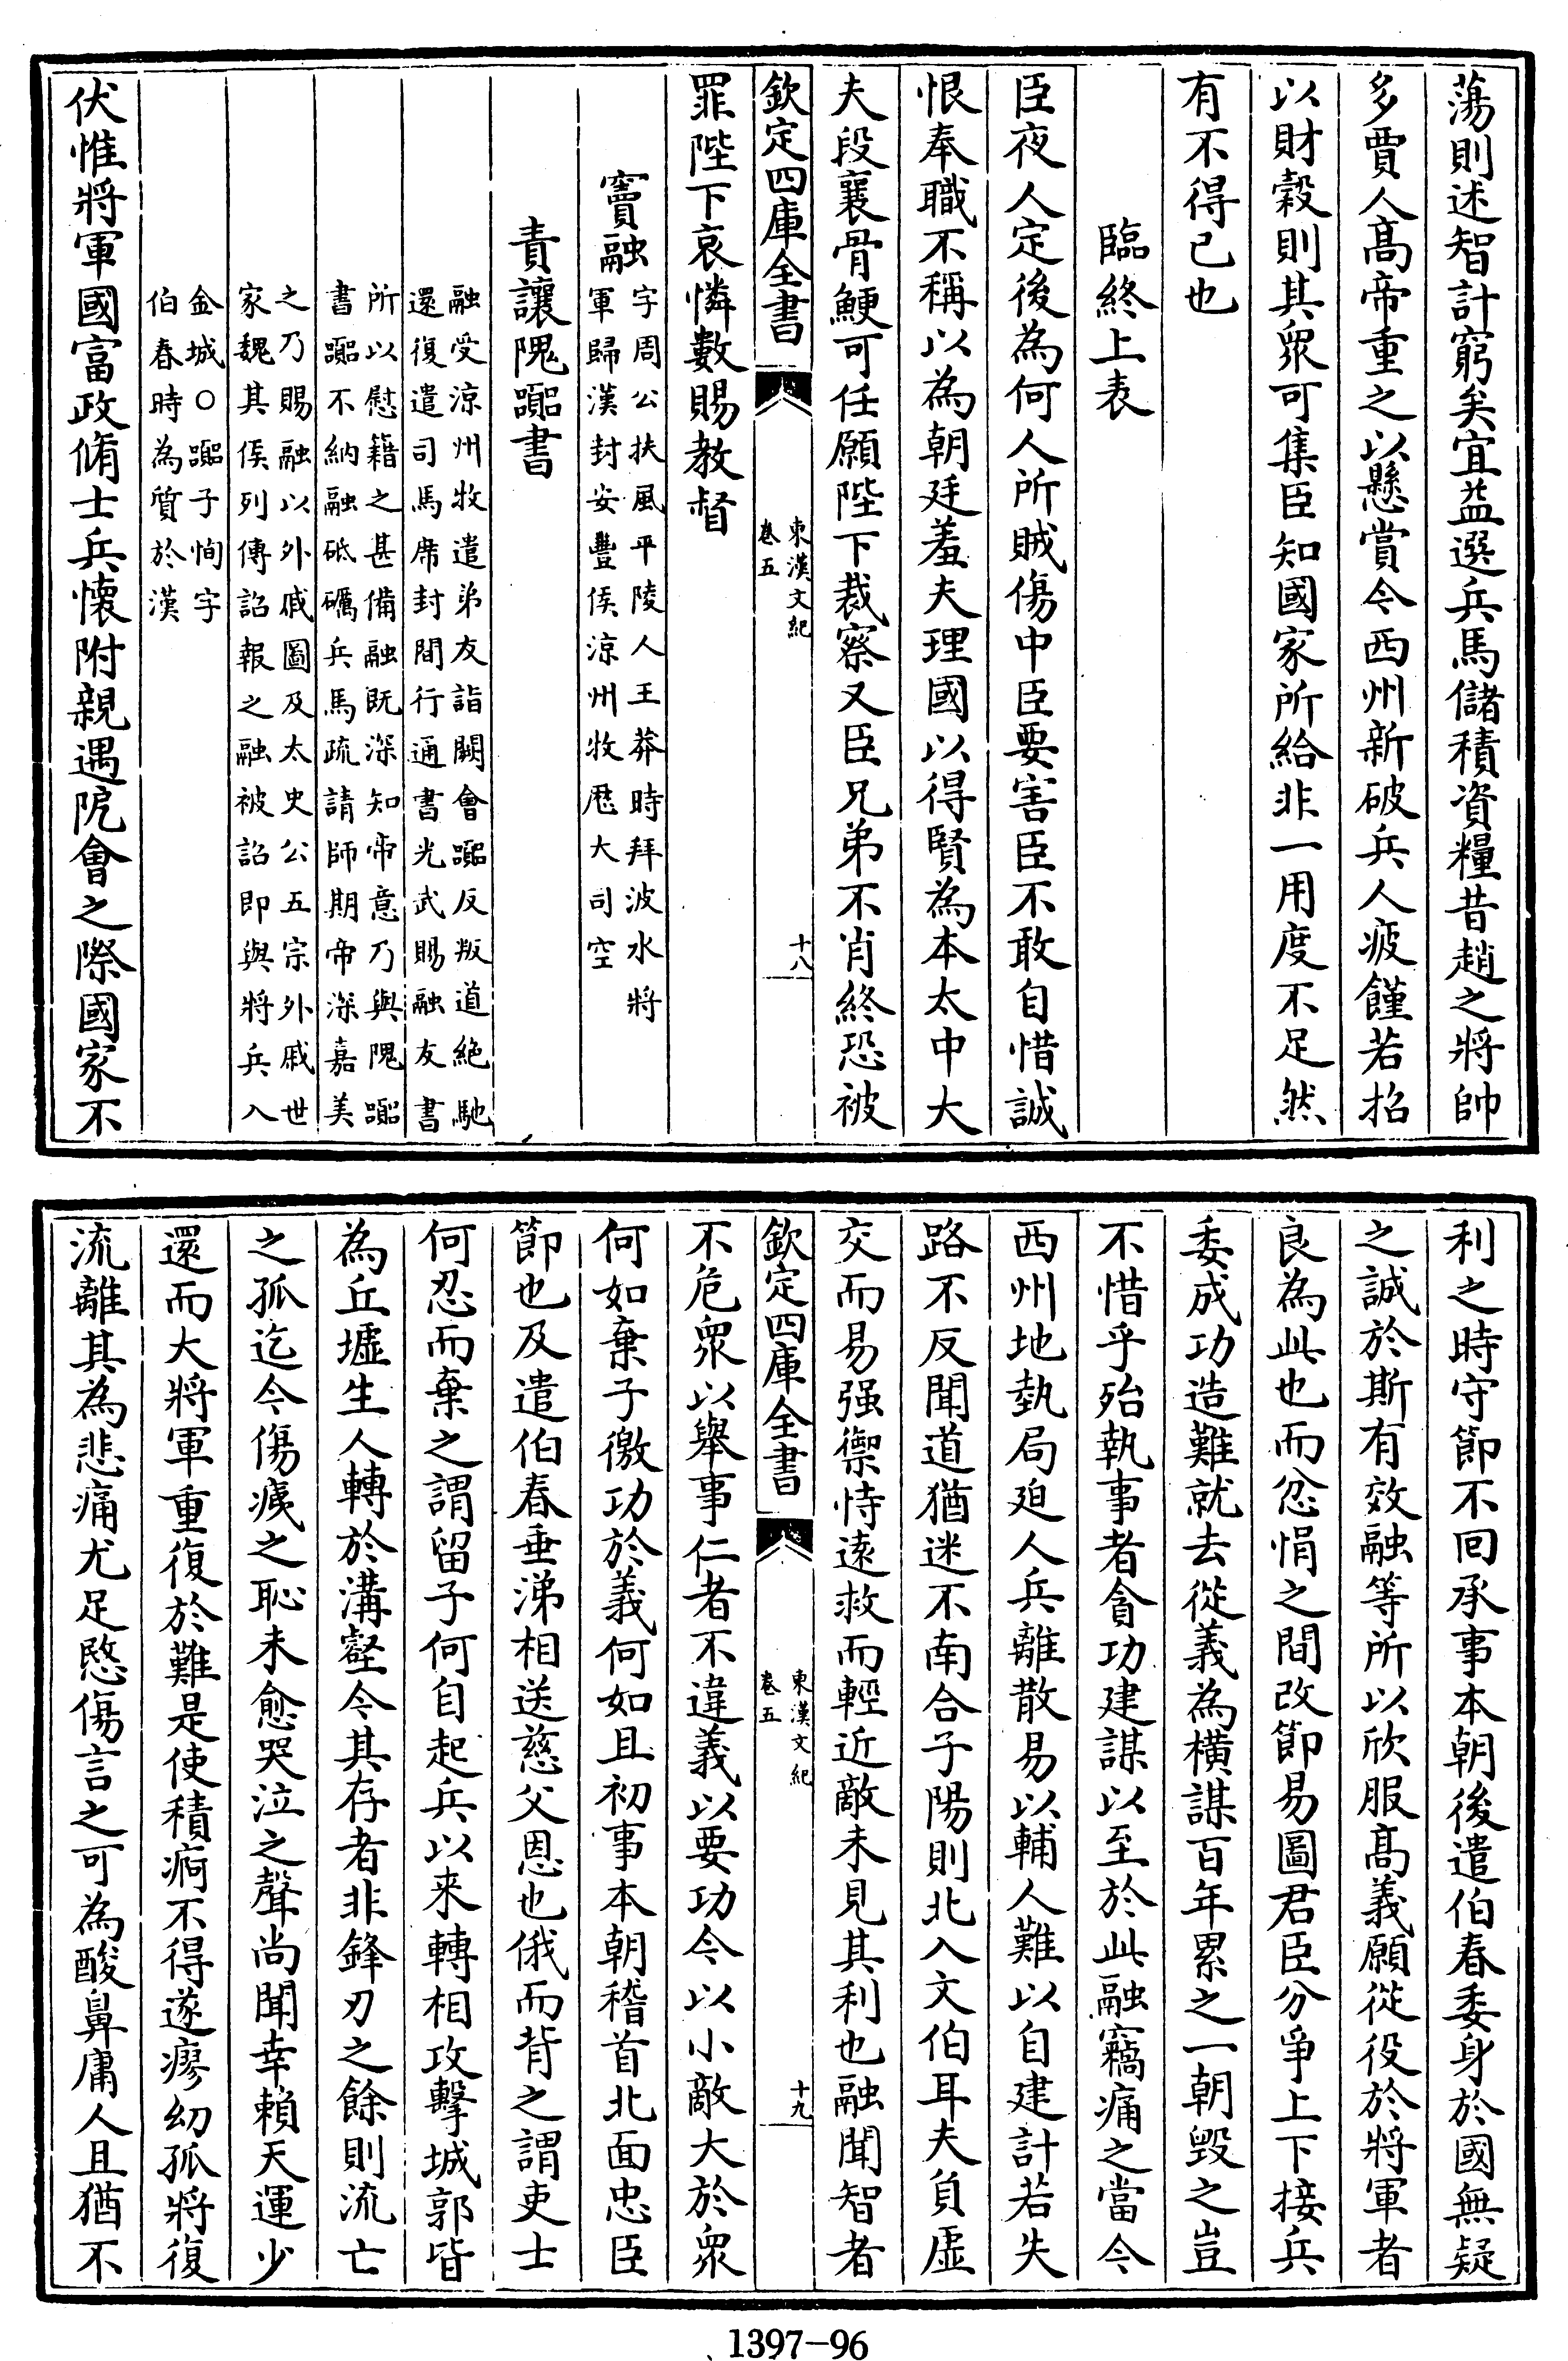 蕩則述智計窮矣宜益選兵馬儲積資糧昔趙之將帥
多賈人高帝重之以懸賞今西州新破兵人疲饉若招
以財穀則其衆可集臣知國家所給非一用度不足然
有不得已也
臨終上表
臣夜人定後為何人所賊傷中臣要害臣不敢自惜誠
恨奉職不稱以為朝廷羞夫理國以得賢為本太中大
夫段襄骨鯁可任願陛下裁察又臣兄弟不肖終恐被
欽定四庫全書
東漢文紀
卷五
十八
罪陛下哀憐數賜教督
竇融
字周公扶風平陵人王莽時拜波水將
軍歸漢封安豐侯涼州牧歷大司空
責讓隗囂書
融受涼州牧遣弟友詣闕會囂反叛道絶馳
還復遣司馬席封間行通書光武賜融友書
所以慰籍之甚備融既深知帝意乃與隗囂
書囂不納融砥礪兵馬疏請師期帝深嘉美
之乃賜融以外戚圖及太史公五宗外戚世
家魏其侯列傳詔報之融被詔即與將兵入
金城○囂子恂字
伯春時為質於漢
伏惟將軍國富政脩士兵懷附親遇阨會之際國家不
利之時守節不回承事本朝後遣伯春委身於國無疑
之誠於斯有效融等所以欣服高義願從役於將軍者
良為此也而忿悁之間改節易圖君臣分爭上下接兵
委成功造難就去從義為橫謀百年累之一朝毀之豈
不惜乎殆執事者貪功建謀以至於此融竊痛之當今
西州地埶局迫人兵離散易以輔人難以自建計若失
路不反聞道猶迷不南合子陽則北入文伯耳夫負虛
交而易强禦恃遠救而輕近敵未見其利也融聞智者
欽定四庫全書
東漢文紀
卷五
十九
不危衆以舉事仁者不違義以要功今以小敵大於衆
何如棄子徼功於義何如且初事本朝稽首北面忠臣
節也及遣伯春垂涕相送慈父恩也俄而背之謂吏士
何忍而棄之謂留子何自起兵以来轉相攻擊城郭皆
為丘墟生人轉於溝壑今其存者非鋒刃之餘則流亡
之孤迄今傷痍之恥未愈哭泣之聲尚聞幸賴天運少
還而大將軍重復於難是使積痾不得遂瘳幼孤將復
流離其為悲痛尤足愍傷言之可為酸鼻庸人且猶不
1397-96